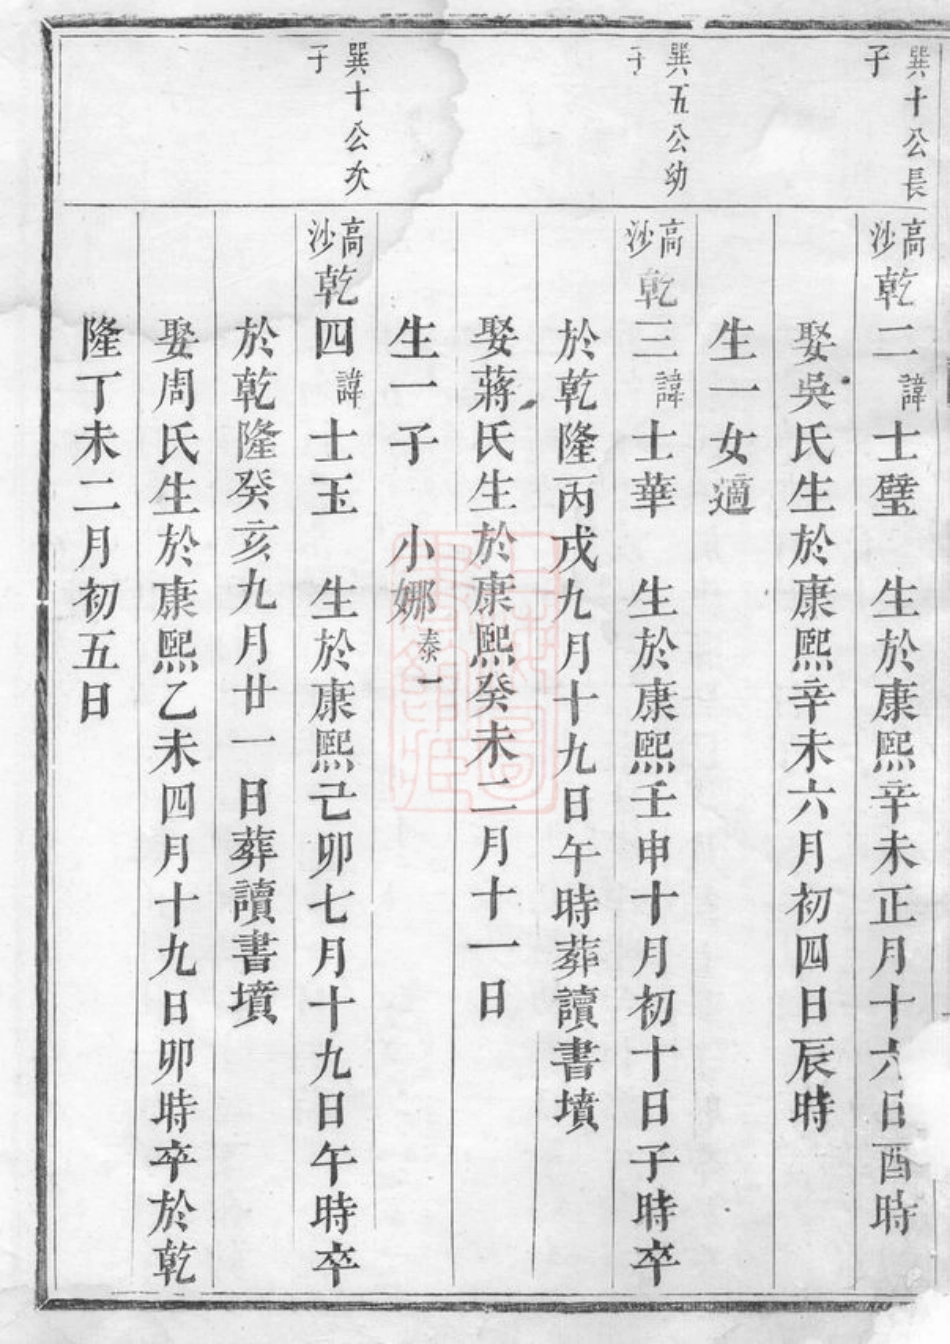 巽十公長
子
高沙乾二諱士璧 生於康熙辛未正月十六日酉時
娶吳氏生於康熙辛未六月初四日辰時
生一女適
巽五公幼
子
高沙乾三諱士華 生於康熙壬申十月初十日子時卒
於乾隆丙戌九月十九日午時葬讀書墳
娶蔣氏生於康熙癸未二月十一日
生一子 小娜泰一
巽十公次
子
高沙乾四諱士玉 生於康熙己卯七月十九日午時卒
於乾隆癸亥九月廿一日葬讀書墳
娶周氏生於康熙乙未四月十九日卯時卒於乾
隆丁未二月初五日